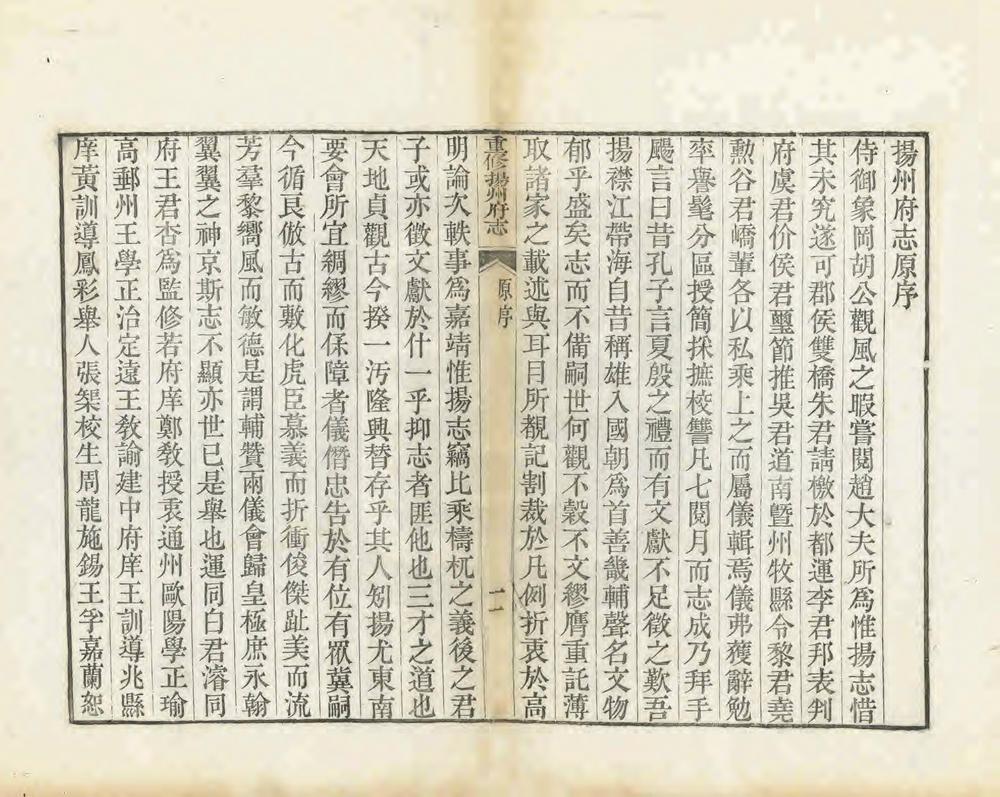 揚州府志原序
侍御象岡胡公觀風之暇嘗閱趙大夫所爲惟揚志惜
其未究遂可郡侯雙橋朱君請檄於都運李君邦表判
府虞君价侯君璽節推吳君道南暨州牧縣令黎君堯
勲谷君嶠輩各以私乘上之而屬儀輯焉儀弗獲辭勉
率譽髦分區授簡採摭校讐凡七閱月而志成乃拜手
颺言曰昔孔子言夏殷之禮而有文獻不足徵之歎吾
揚襟江帶海自昔稱雄入國朝爲首善畿輔聲名文物
郁乎盛矣志而不備嗣世何觀不穀不文繆膺重託薄
取諸家之載述與耳目所覩記割裁於凡例折衷於高
重修揚州府志
原序
二
明論次軼事爲嘉靖惟揚志竊比乘檮杌之義後之君
子或亦徵文獻於什一乎抑志者匪他也三才之道也
天地貞觀古今揆一汚隆興替存乎其人矧揚尤東南
要會所宜綢繆而保障者儀僭忠告於有位有眾冀嗣
今循良倣古而敷化虎臣慕義而折衝俊傑趾美而流
芳羣黎嚮風而敏德是謂輔贊兩儀會歸皇極庶永翰
翼翼之神京斯志不顯亦世已是舉也運同白君濬同
府王君杏爲監修若府庠鄭教授衷通州歐陽學正瑜
高郵州王學正治定遠王教諭建中府庠王訓導兆縣
庠黃訓導鳳彩舉人張榘校生周龍施錫王孚嘉蘭恕